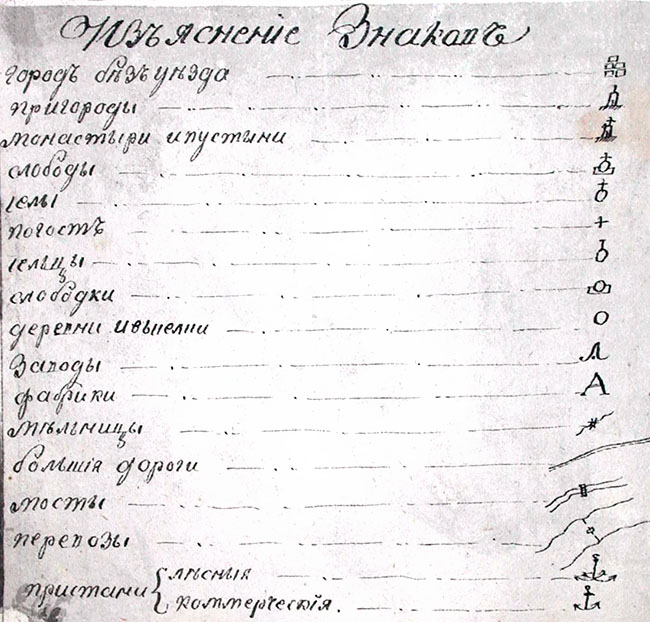 Изъясненіе Знаковъ
городъ безъ уѣзда
пригороды
монастыри и пустыни
слободы
селы
погостъ
сельцы
слободки
деревни и выселки
Заводы
фабрики
мѣльницы
большія дороги
мосты
перевозы
пристани
лѣсныя
коммерческія.